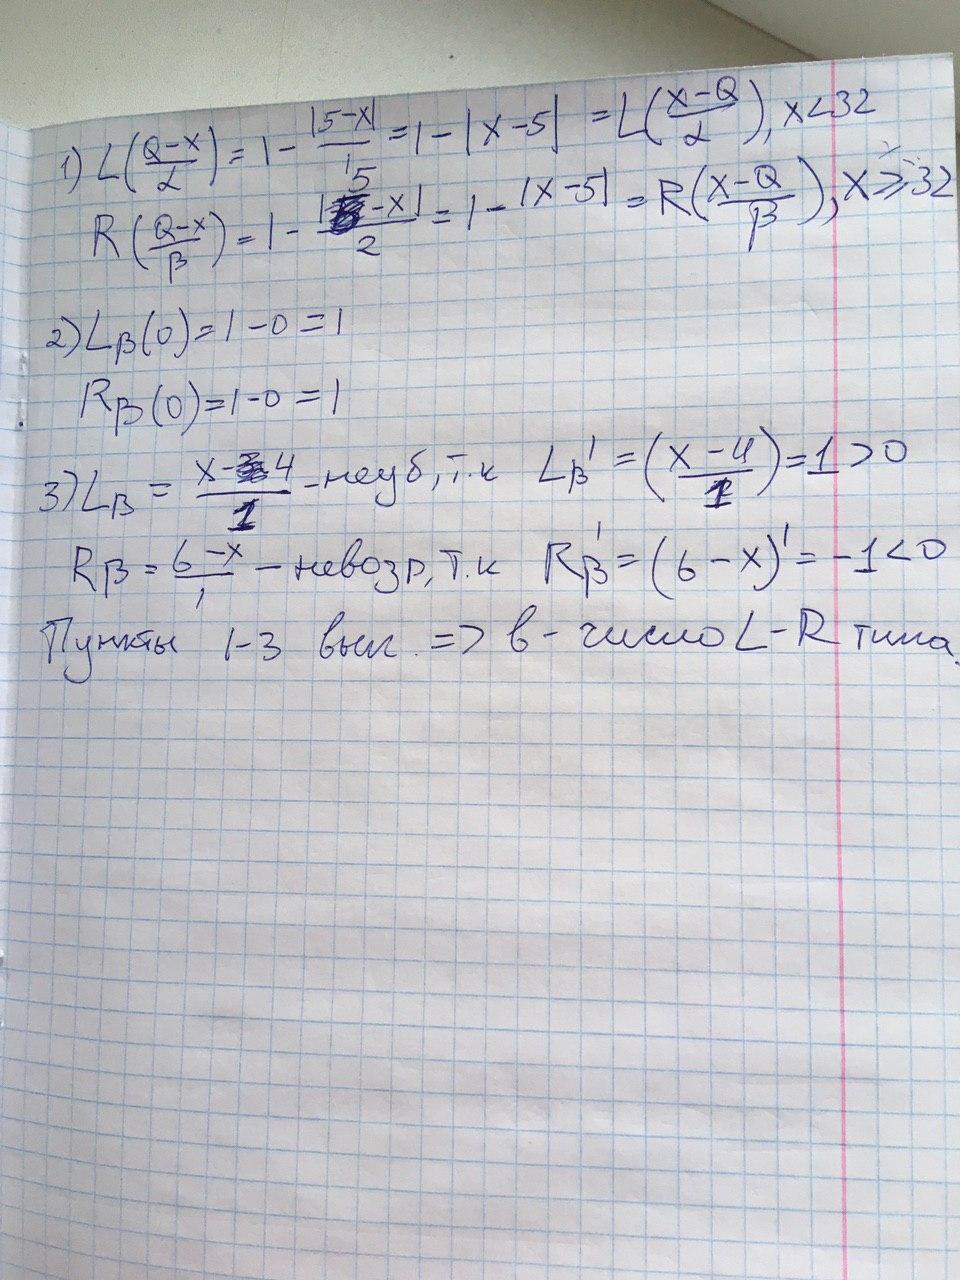 1) L(Q-x/α) = 1 - |5-x|/1 = 1 - |x-5| = L(x-Q/α), x<32
R(Q-x/β) = 1 - |5-x|/2 = 1 - |x-5| = R(x-Q/β), x≥32
2) Lβ(0) = 1-0 = 1
Rβ(0) = 1-0 = 1
3) Lβ = x-4/1 - неуб, т.к Lβ' = (x-4/1) = 1 > 0
Rβ = 6-x/1 - невозр, т.к Rβ' = (6-x)' = -1 < 0
Пункты 1-3 вып. => в - число L-R типа.